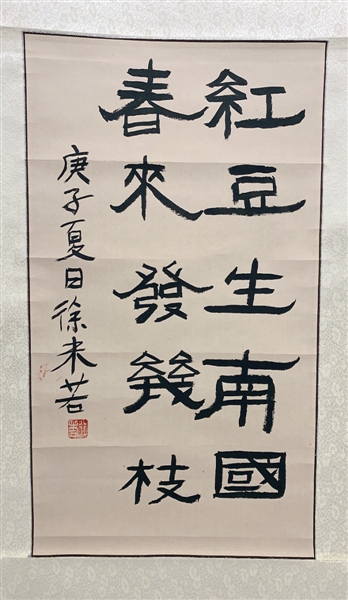 紅豆生南國
春來發幾枝
庚子夏日徐未若